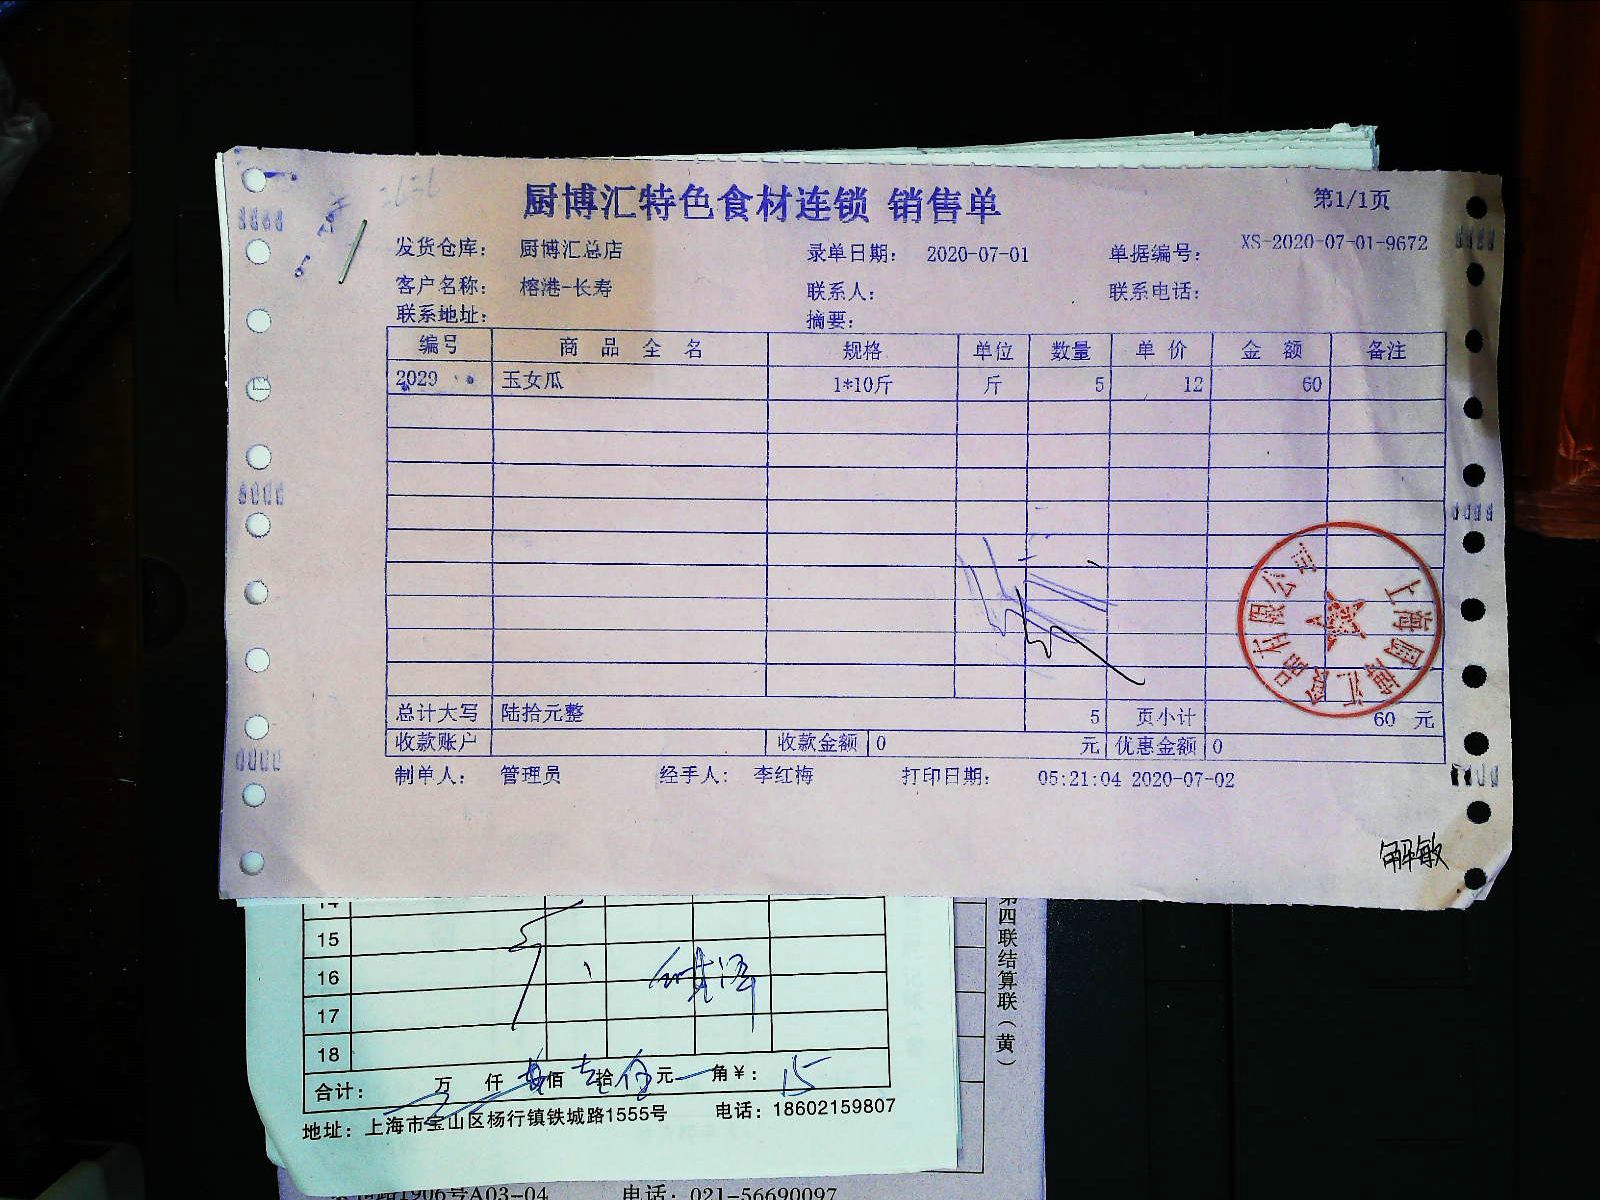 厨博汇特色食材连锁 销售单
第1/1页
发货仓库： 厨博汇总店 录单日期： 2020-07-01 单据编号： XS-2020-07-01-9672
客户名称： 榕港-长寿 联系人： 联系电话：
联系地址： 摘要：
编号 商品全名 规格 单位 数量 单价 金额 备注
2029 玉女瓜 1*10斤 斤 5 12 60
上海厨博汇食品有限公司
总计大写 陆拾元整 5 页小计 60 元
收款账户 收款金额 0 元 优惠金额 0
制单人： 管理员 经手人： 李红梅 打印日期： 05:21:04 2020-07-02
解敏
第四联结算联（黄）
14
15
16
17
18
合计： 万 仟 佰 拾 元 角￥： 15
地址：上海市宝山区杨行镇铁城路1555号 电话：18602159807
路1906号A03-04 电话：021-56690097